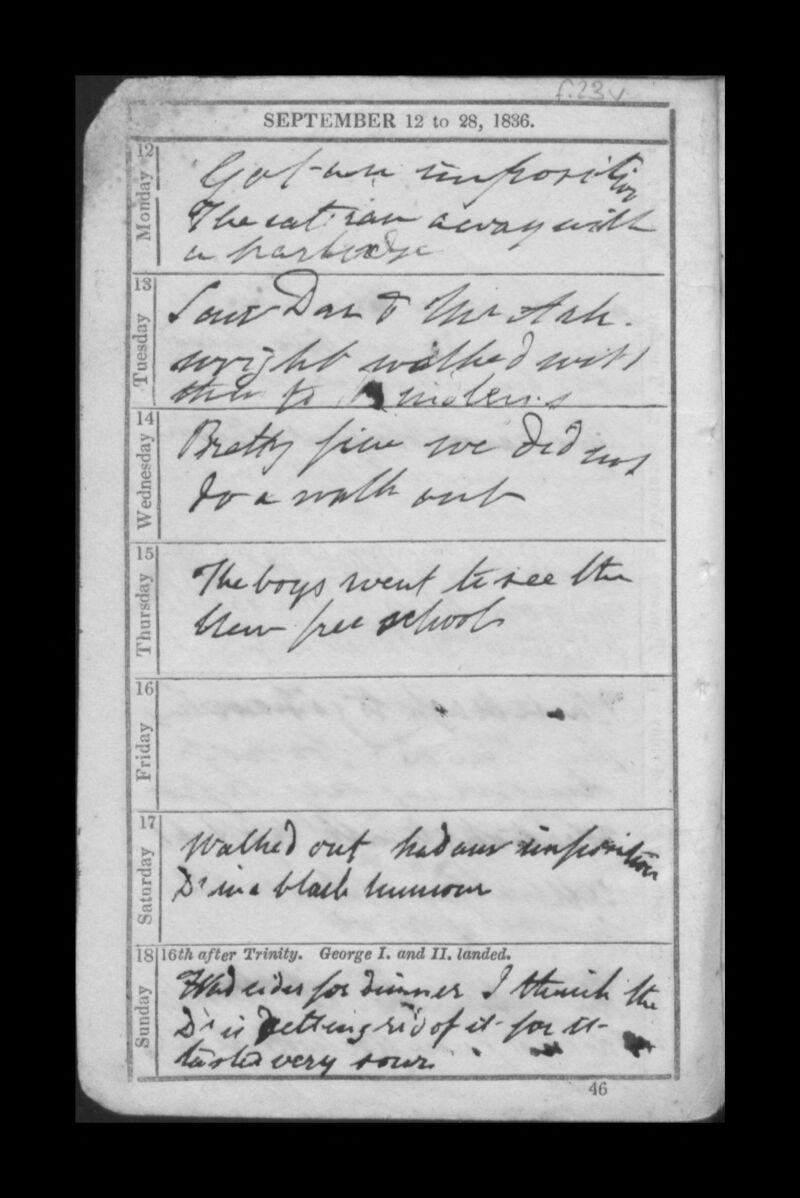 f.23v.
SEPTEMBER 12 to 28, 1836.
12
Monday
Got an imposition
The cat ran away with
a partridge
13
Tuesday
Saw Dan & Mr Ark-
wright walked with
them to
14
Wednesday
Pretty fine we did not
do a walk out
15
Thursday
The boys went to see the
New free school
16
Friday
17
Saturday
Walked out had an imposition
Dr in a black humour
18
Sunday
16th after Trinity. George I. and II. landed.
Had cider for dinner I think the
Dr is getting rid of it for it
tasted very sour
46